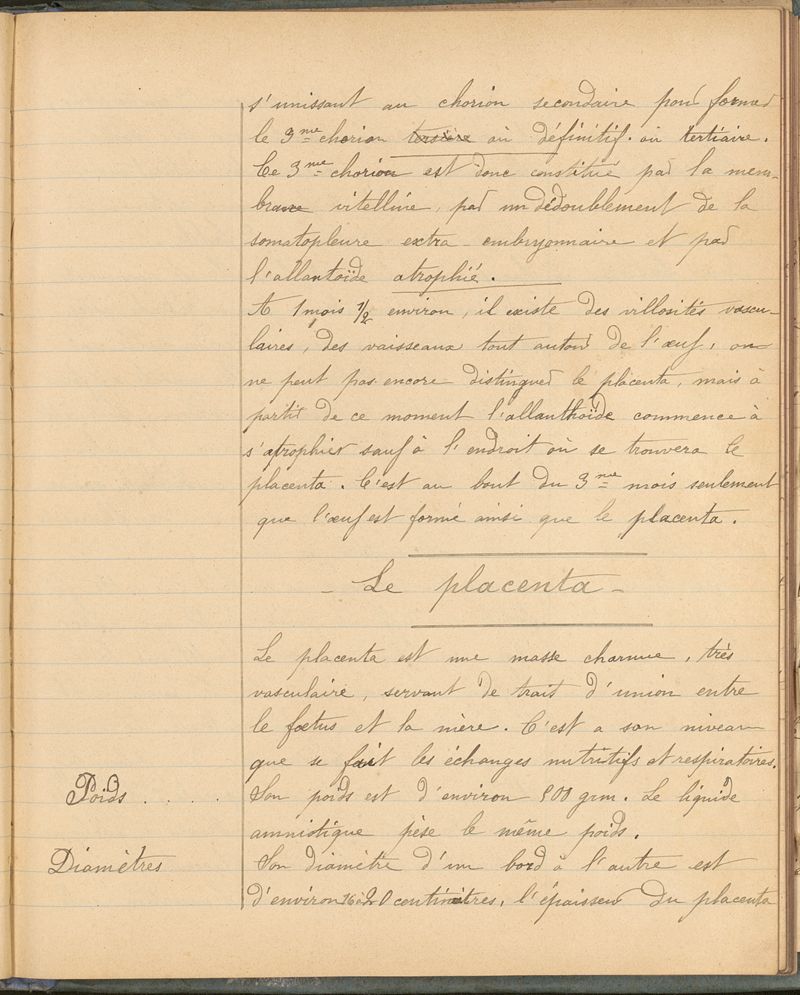 s'unissant au chorion secondaire pour former
le 3me chorion tersière ou définitif. ou tertiaire.
Ce 3me chorion est donc constitué par la mem-
brane vitelline, par un dédoublement de la
somatopleure extra-embryonnaire et par
l'allantoïde atrophié.
A 1 mois 1/2 environ, il existe des villosités vascu-
laires, des vaisseaux tout autour de l'œuf, on
ne peut pas encore distinguer le placenta, mais à
partir de ce moment l'allanthoïde commence à
s'atrophier sauf à l'endroit où se trouvera le
placenta. C'est au bout du 3me mois seulement
que l'œuf est formé ainsi que le placenta.
- Le placenta -
Le placenta est une masse charnue, très
vasculaire, servant de trait d'union entre
le fœtus et la mère. C'est a son niveau
que se fait les échanges nutritifs et respiratoires.
Poids . . . . Son poids est d'environ 500 grm. Le liquide
amniotique pèse le même poids.
Diamètres Son diamètre d'un bord à l'autre est
d'environ 16 à 20 centimètres, l'épaisseur du placenta